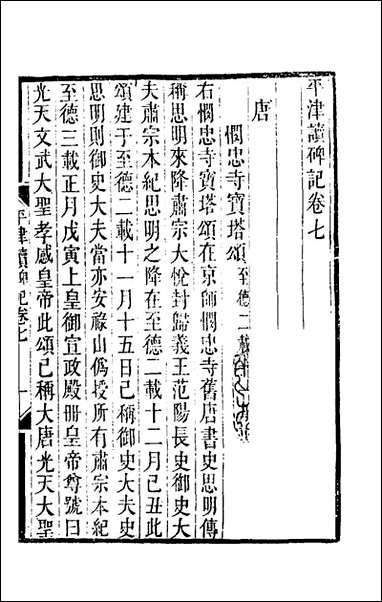 平津讀碑記卷七
唐
憫忠寺寶塔頌 至德二載十一月
右憫忠寺寶塔頌在京師憫忠寺舊唐書史思明傳
稱思明來降肅宗大悅封歸義王范陽長史御史大
夫肅宗本紀思明之降在至德二載十二月己丑此
頌建于至德二載十一月十五日已稱御史大夫史
思明則御史大夫當亦安祿山僞授所有肅宗本紀
至德三載正月戊寅上皇御宣政殿冊皇帝尊號曰
光天文武大聖孝感皇帝此頌已稱大唐光天大聖
平津讀碑記卷七 一